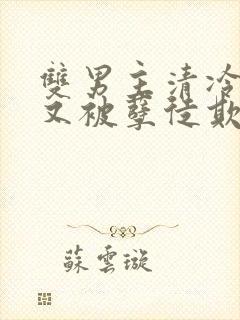 雙男主清冷
又被孽徒欺
蘇雲璇